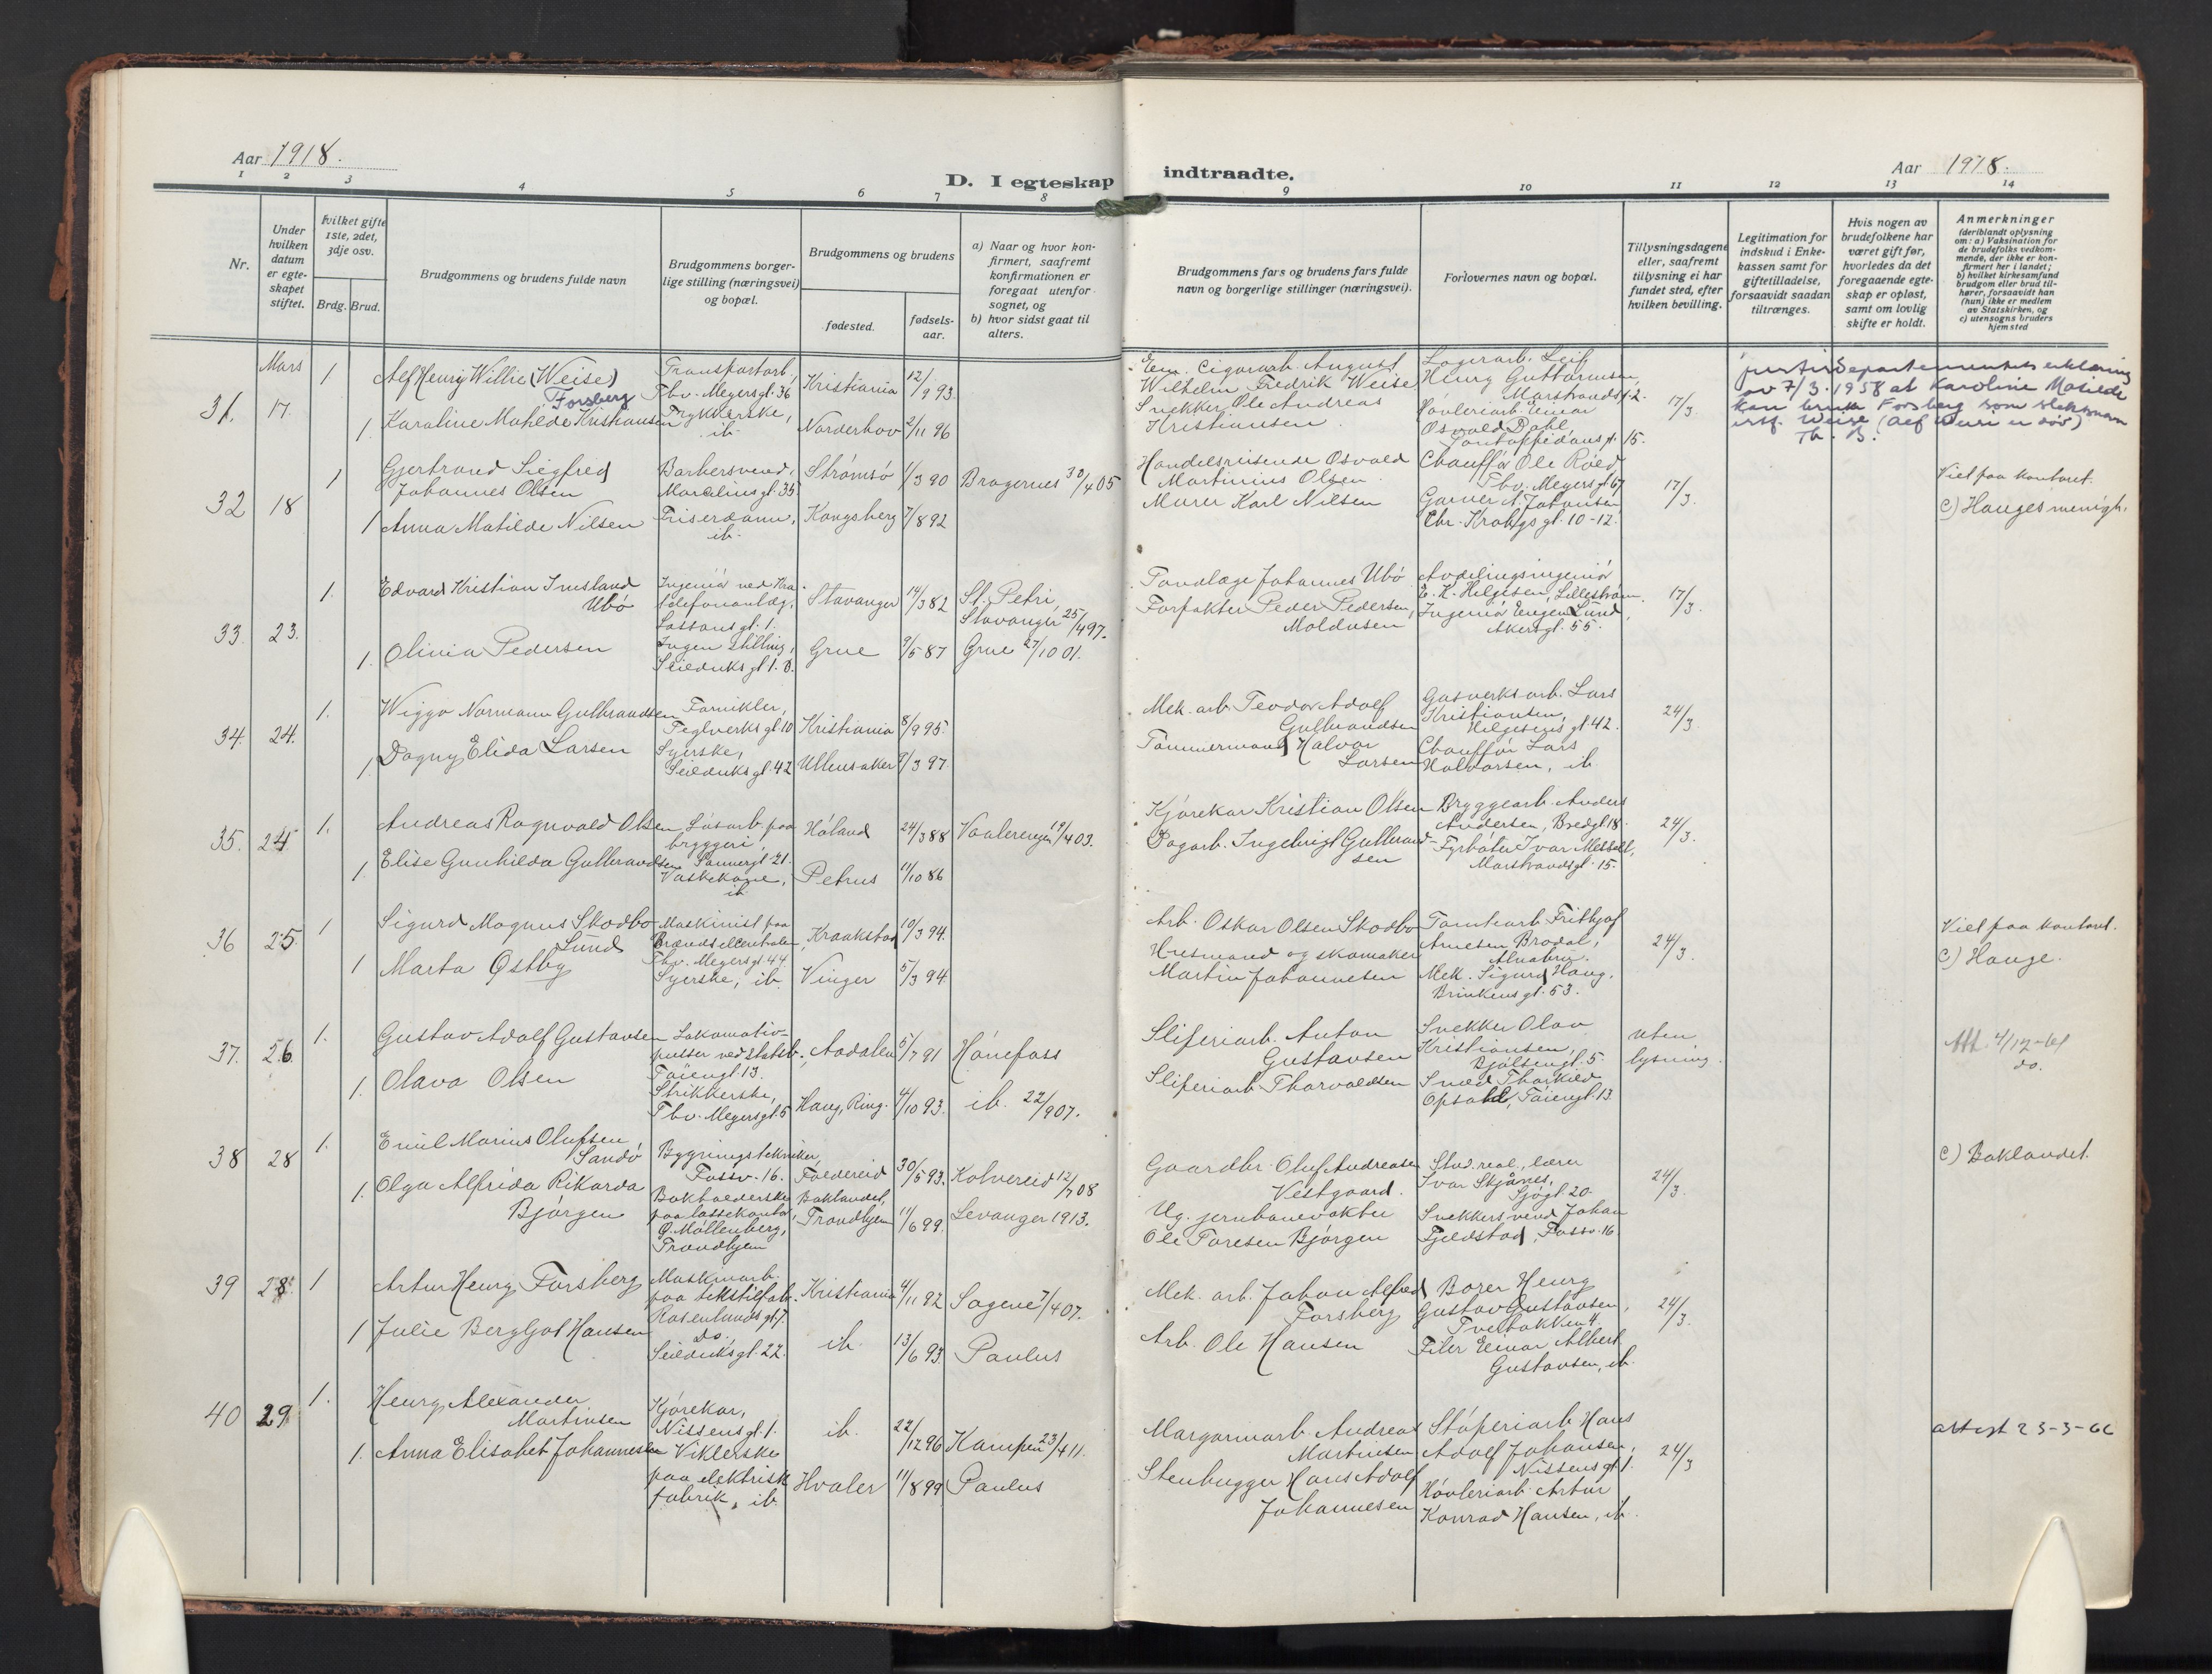 Aar 1918.
D. I egteskap indtraadte.
Aar 1918.
1 2 3 4 5 6 7 8 9 10 11 12 13 14
Nr.
Under hvilken datum er egteskapet stiftet.
Hvilket gifte 1ste, 2det, 3dje osv.
Brdg. Brud.
Brudgommens og brudens fulde navn
Brudgommens borgerlige stilling (næringsvei) og bopæl.
Brudgommens og brudens
fødested.
fødselsaar.
a) Naar og hvor konfirmert, saafremt konfirmationen er foregaat utenfor sognet, og
b) hvor sidst gaat til alters.
Brudgommens fars og brudens fars fulde navn og borgerlige stillinger (næringsvei).
Forlovernes navn og bopæl.
Tillysningsdagene eller, saafremt tillysning ei har fundet sted, efter hvilken bevilling.
Legitimation for indskud i Enkekassen samt for giftetilladelse, forsaavidt saadan tiltrænges.
Hvis nogen av brudefolkene har været gift før, hvorledes da det foregaaende egteskap er opløst, samt om lovlig skifte er holdt.
Anmerkninger (deriblandt oplysning om: a) Vaksination for de brudefolks vedkommende, der ikke er konfirmert her i landet; b) hvilket kirkesamfund brudgom eller brud tilhører, forsaavidt han (hun) ikke er medlem av Statskirken, og c) utensogns bruders hjemsted
31. Mars 17. 1
Alf Henry Willie (Weise) Forsberg
Transportarb., Thv. Meyersgt. 36
Kristiania 12/9 93.
1. Karoline Mathilde Kristiansen
Trykkerske, ib.
Norderhov 2/11 96
Em. Cigararb. August Wilhelm Fredrik Weise
Snekker Ole Andreas Kristiansen
Lagerarb. Leif Henry Guttormsen, Marstrandsgt. 2.
Høvleriarb. Einar Osvald Dahl, 15.
17/3.
Justisdepartementets erklæring
av 7/3.1958 at Karoline Matilde
kan bruke Forsberg som slektsnavn
istf. Weise (Alf Weise er død)
Th. B.
32 18 1
Gjertrand Siegfred Johannes Olsen
Barbersvend, Marcelinsgt. 35.
Strømsø 1/3 90
Bragernes 30/4 05
1 Anna Matilde Nilsen
Friserdame, ib.
Kongsberg 7/8 92
Handelsreisende Osvald Martinius Olsen
Murer Karl Nilsen
Chauffør Ole Røed, Thv. Meyersgt 67
Garver A. Johansen Chr. Krohgs gt. 10-12.
17/3.
Viet paa kontoret.
C) Hauges menigh.
33. 23. 1.
Edvard Kristian Imsland Ubø
Ingeniør ved Kra. telefonanlæg, Lassonsgt. 1.
Stavanger 14/3 82
St. Petri, Stavanger 25/4 97.
1. Olivia Pedersen
Ingen stilling, Seilduksgt. 1. B.
Grue 9/5 87
Grue 27/10 01.
Tandlæge Johannes Ubø
Forpakter Peder Pedersen, Moldusen
Avdelingsingeniør E. K. Helgesen, Lillestrøm.
Ingeniør Eugen Lund, Akersgt. 55.
17/3.
34. 24. 1.
Wiggo Normann Gulbrandsen
Fornikler, Teglverksgt. 10
Kristiania 8/9 95.
1. Dagny Elida Larsen
Syerske, Seilduksgt. 42
Ullensaker 9/3 97.
Mek. arb. Teodor Adolf Gulbrandsen
Tømmermand Halvor Larsen
Gasverksarb. Lars Kristiansen, Helgesens gt. 42.
Chauffør Lars Halvorsen, ib.
24/3.
35. 24. 1.
Andreas Ragnvald Olsen
Løsarb. paa bryggeri, Sannergt. 21.
Høland 24/3 88
Vaalerengen 19/4 03.
1. Elise Gunhilda Gulbrandsen
Vaskekone, ib.
Petrus 11/10 86
Kjørekar Kristian Olsen
Dagarb. Ingebrigt Gulbrandsen
Bryggearb. Anders Andersen, Bredgt. 18.
Fyrbøter Ivar Messell, Marstrandsgt. 15.
24/3.
36 25. 1
Sigurd Magnus Skodbo Lund
Maskinist paa Brændselcentralen, Thv. Meyersgt. 44.
Kraakstad 10/3 94.
1 Marta Østby
Syerske, ib.
Vinger 5/3 94.
Arb. Oskar Olsen Skodbo
Husmand og skomaker Martin Johannesen
Tomtearb. Frithjof Arnesen Brodal, Alnabru.
Mek. Sigurd Haug, Brinkens gt. 53.
24/3.
Viet paa kontoret.
C) Hauge.
37. 26 1.
Gustav Adolf Gustavsen
Lokomotivpusser ved Statsb., Tøiengt. 13.
Aadalen 5/7 91
Hønefoss
1. Olava Olsen
Strikkerske, Thv. Meyersgt. 5
Haug, Ring. 4/10 93.
ib. 22/9 07.
Sliperiarb. Anton Gustavsen
Sliperiarb. Thorvaldsen
Snekker Olav Kristiansen, Bjølsengt. 5.
Smed Thorkild Opsahl, Tøiengt. 13.
uten lysning.
Att. 4/12-61
do.
38 28 1.
Emil Marius Olufsen Sandø
Bygningstekniker, Fossv. 16.
Foldereid 30/5 93.
Kolvereid 12/7 08
1. Olga Alfrida Rikarda Bjørgen
Bokholderske paa lassekontor, Ø. Møllenberg, Trondhjem
Baklandet, Trondhjem 11/6 99.
Levanger 1913.
Gaardbr. Oluf Andreasen Vestgaard.
Ug. jernbanevokter Ole Toresen Bjørgen
Stud. real., lærer Ivar Skjånes, Sjøgt. 20.
Snekkersvend Johan Fjeldstad, Fossv. 16.
24/3.
C) Baklandet.
39 28. 1
Artur Henry Forsberg
Maskinarb. paa tekstilfab. Rosenlundsgt. 7.
Kristiania 4/11 92
Sagene 7/4 07.
1 Julie Bergljot Hansen
do., Seilduksgt. 22.
ib. 13/6 93
Paulus
Mek. arb. Johan Alfred Forsberg
Arb. Ole Hansen
Borer Henry Gustav Gustavsen, Tverbakken 4.
Filer Einar Albert Gustavsen, ib.
24/3.
40 29. 1.
Henry Alexander Martinsen
Kjørekar, Nissens gt. 1.
ib. 22/12 96
Kampen 23/4 11.
1. Anna Elisabet Johannesen
Viklerske paa elektrisk fabrik, ib.
Hvaler 11/8 99
Paulus
Margarinarb. Andreas Martinsen
Stenhugger Hans Adolf Johannesen
Støperiarb. Hans Adolf Johansen, Nissens gt. 1.
Høvleriarb. Artur Konrad Hansen, ib.
24/3
attest 23-3-66